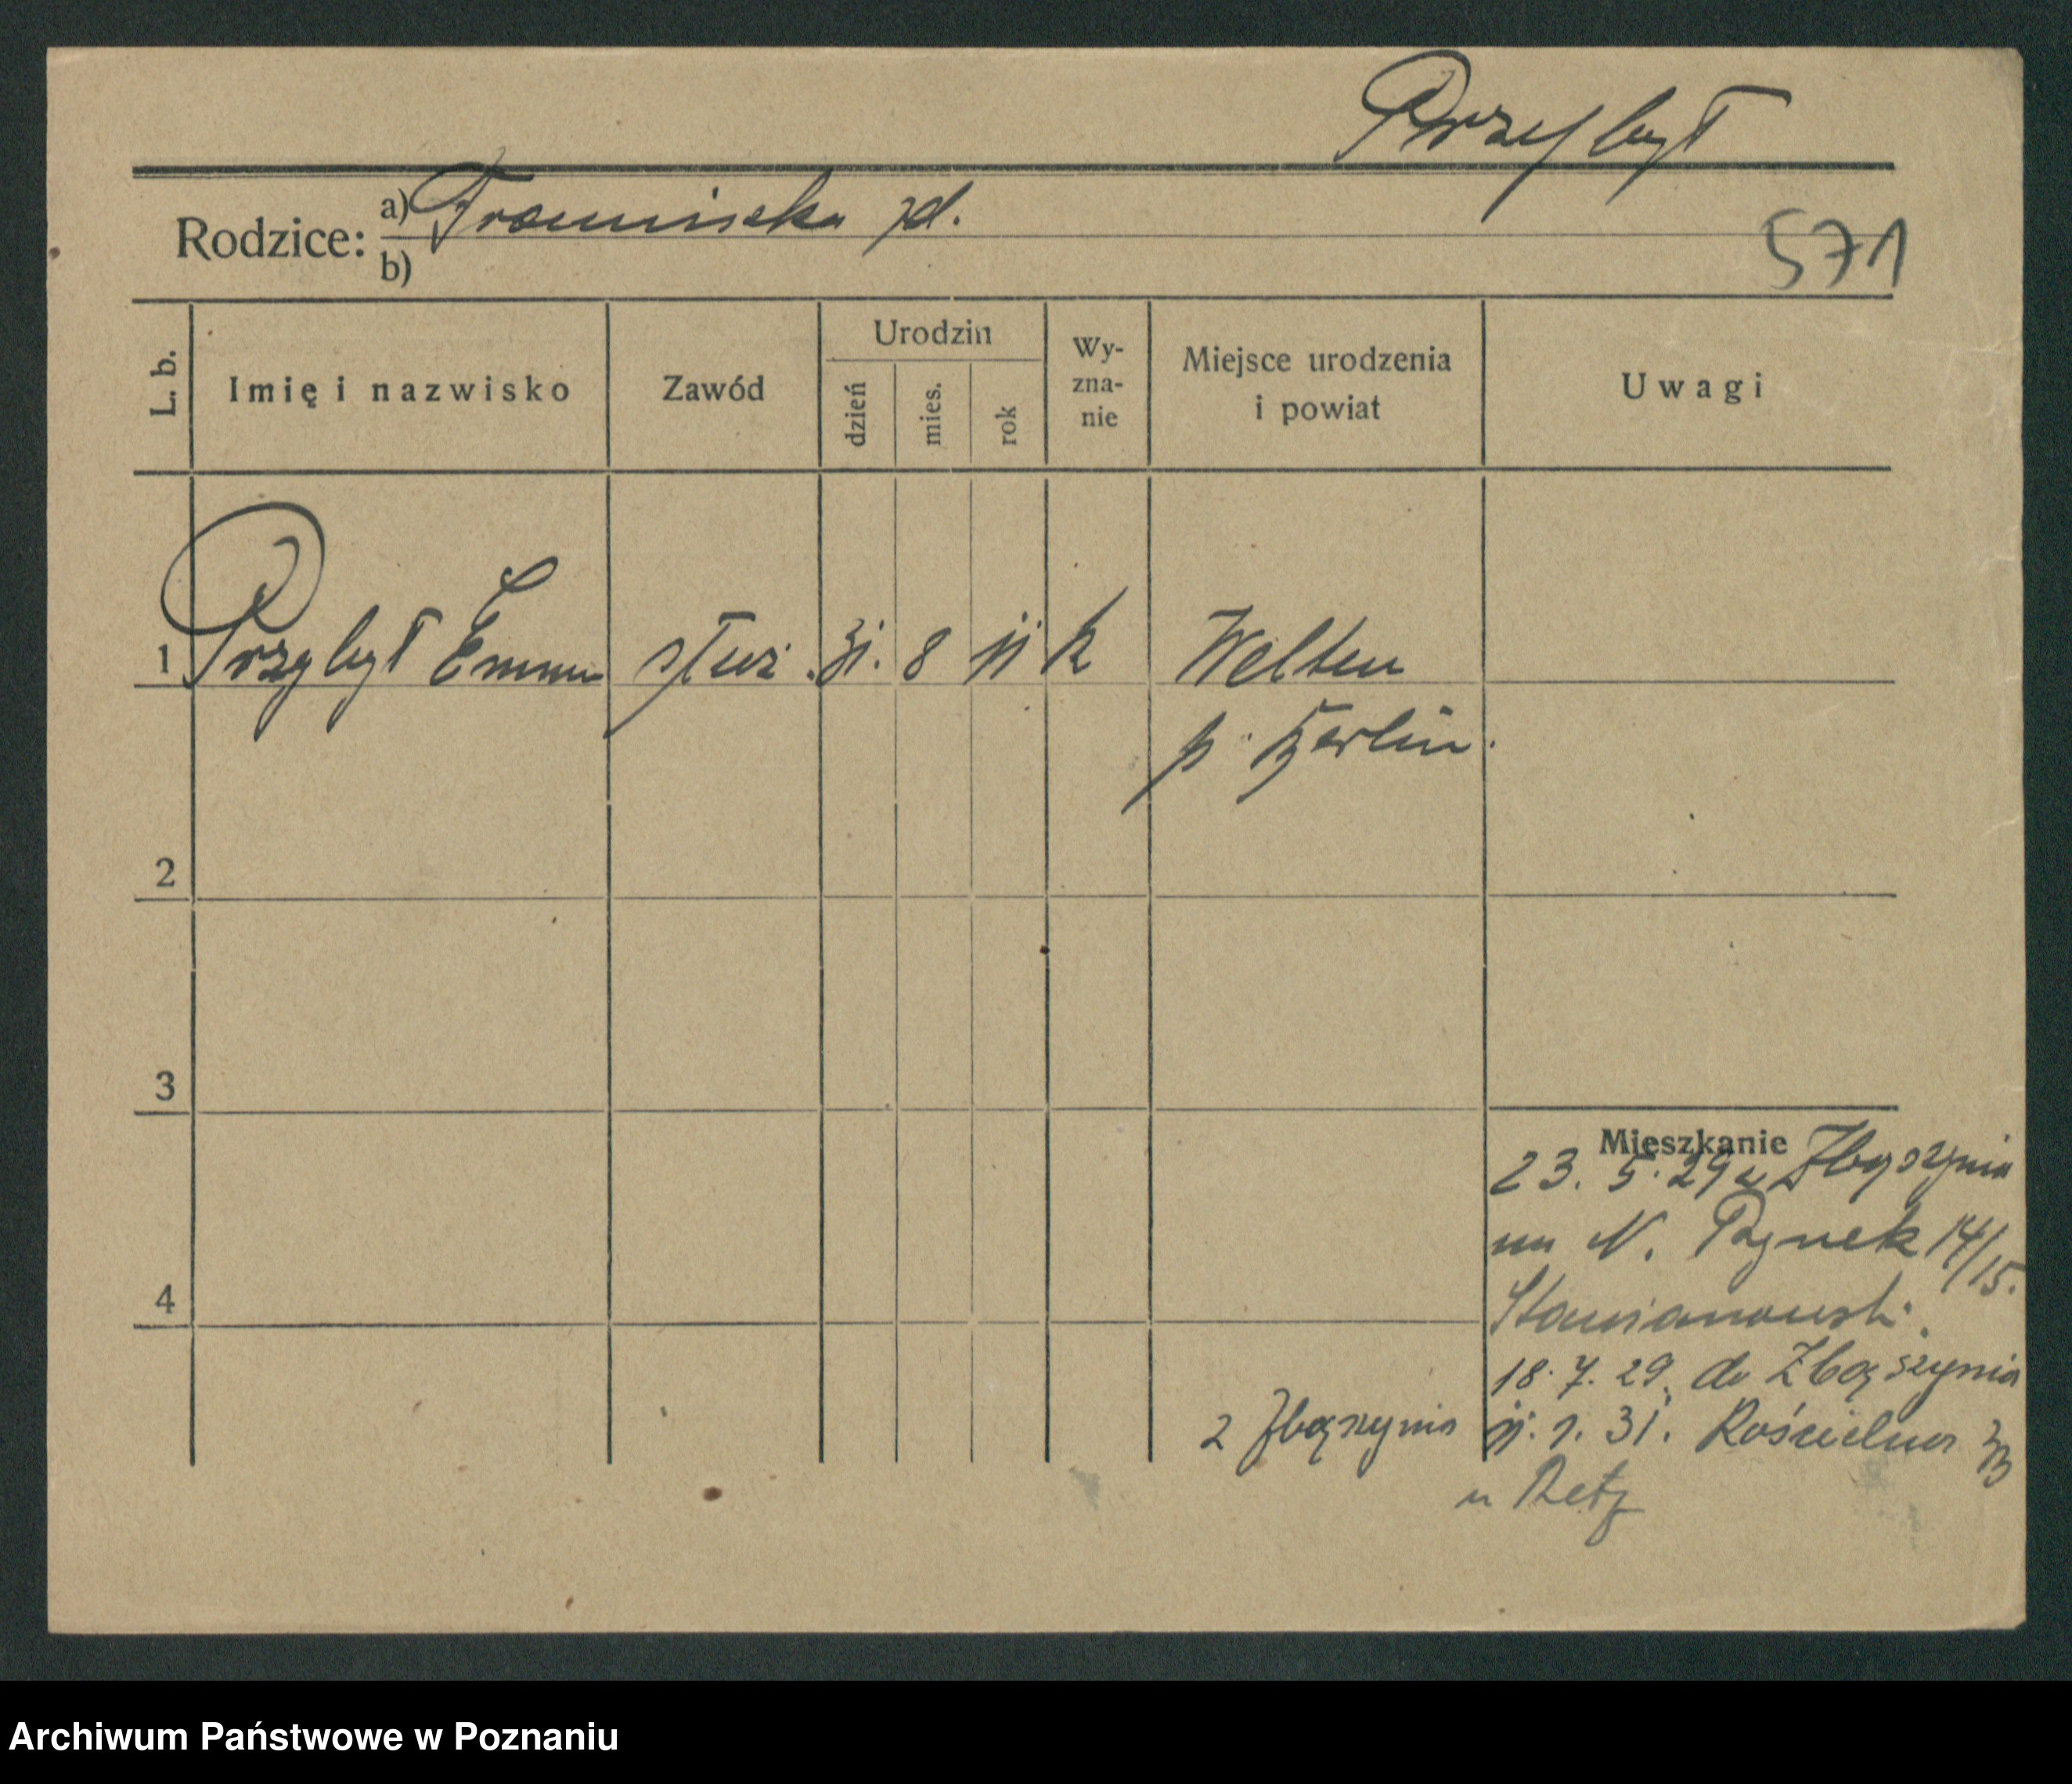 Przybył
Rodzice: a) Franciszka zd.
b)
571
L. b. Imię i nazwisko Zawód Urodzin dzień mies. rok Wy-zna-nie Miejsce urodzenia i powiat Uwagi
1 Przybył Emma służ. 31. 8 11 k Welten
p. Berlin.
2
3
Mieszkanie
23. 5. 29 z Zbąszynia
na N. Rynek 14/15.
4
18. 7. 29. do Zbąszynia
z Zbąszynia 11. 1. 31. Kościelna
u Retz
Archiwum Państwowe w Poznaniu